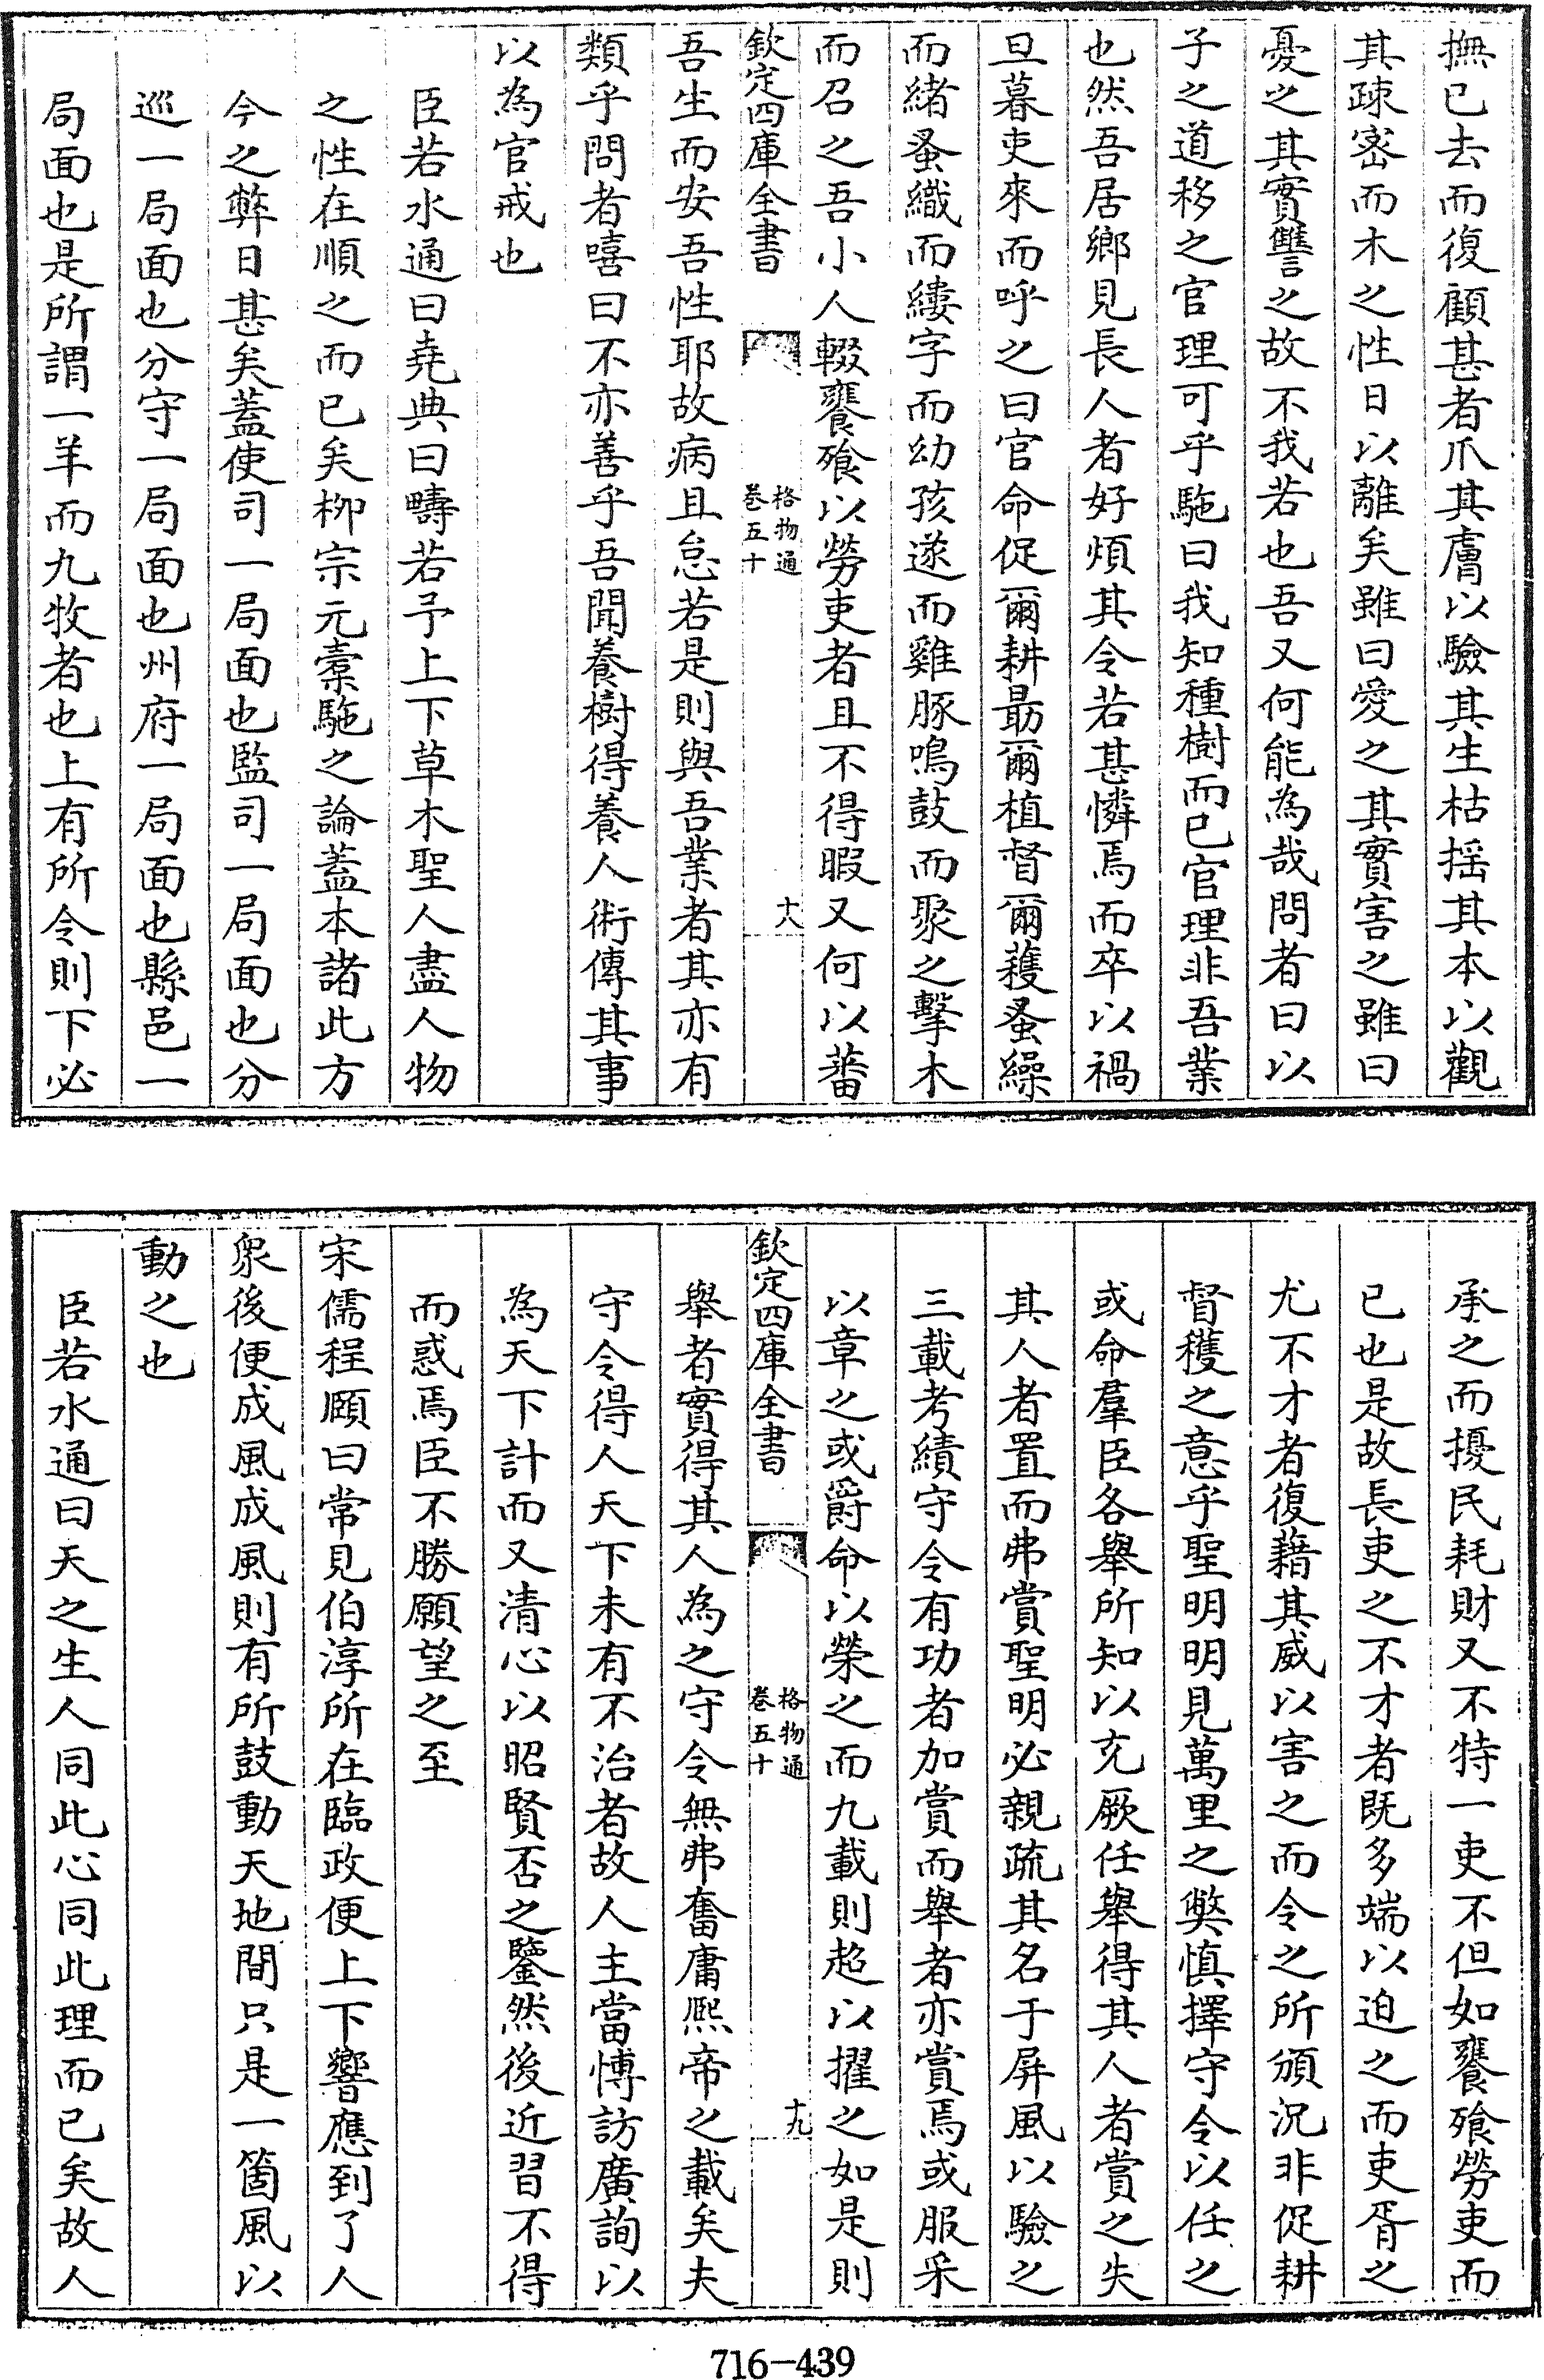 撫已去而復顧甚者爪其膚以驗其生枯揺其本以觀
其疎宻而木之性日以離矣雖曰愛之其實害之雖曰
憂之其實讐之故不我若也吾又何能為哉問者曰以
子之道移之官理可乎駞曰我知種樹而已官理非吾業
也然吾居鄉見長人者好煩其令若甚憐焉而卒以禍
旦暮吏來而呼之曰官命促爾耕朂爾植督爾穫蚤繰
而緒蚤織而縷字而幼孩遂而雞豚鳴鼓而聚之擊木
而召之吾小人輟饔飱以勞吏者且不得暇又何以蕃
欽定四庫全書
格物通
卷五十
十八
吾生而安吾性耶故病且怠若是則與吾業者其亦有
類乎問者嘻曰不亦善乎吾聞養樹得養人術傳其事
以為官戒也
臣若水通曰堯典曰疇若予上下草木聖人盡人物
之性在順之而已矣栁宗元橐駞之論蓋本諸此方
今之弊日甚矣蓋使司一局面也監司一局面也分
巡一局面也分守一局面也州府一局面也縣邑一
局面也是所謂一羊而九牧者也上有所令則下必
承之而擾民耗財又不特一吏不但如饔飱勞吏而
已也是故長吏之不才者既多端以迫之而吏胥之
尤不才者復藉其威以害之而令之所頒況非促耕
督穫之意乎聖明明見萬里之獘慎擇守令以任之
或命羣臣各舉所知以充厥任舉得其人者賞之失
其人者置而弗賞聖明必親疏其名于屏風以驗之
三載考績守令有功者加賞而舉者亦賞焉或服采
以章之或爵命以榮之而九載則超以擢之如是則
欽定四庫全書
格物通
卷五十
十九
舉者實得其人為之守令無弗奮庸熈帝之載矣夫
守令得人天下未有不治者故人主當愽訪廣詢以
為天下計而又清心以昭賢否之鑒然後近習不得
而惑焉臣不勝願望之至
宋儒程頤曰常見伯淳所在臨政便上下響應到了人
衆後便成風成風則有所鼓動天地間只是一箇風以
動之也
臣若水通曰天之生人同此心同此理而已矣故人
716-439